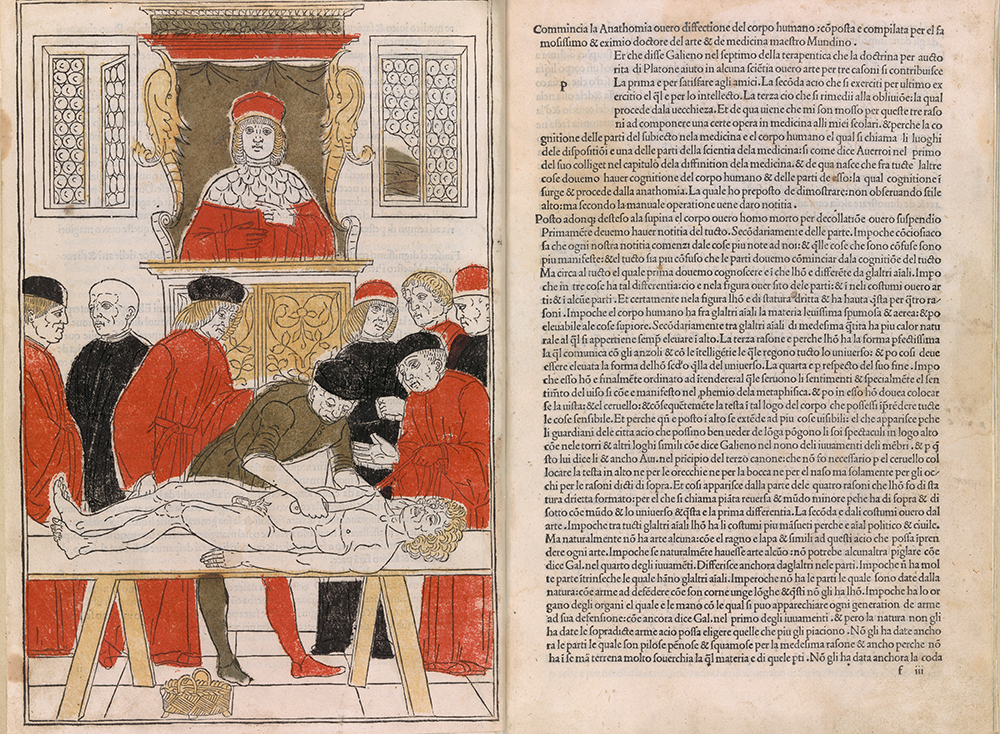 Commincia la Anathomia ouero dissectione del corpo humano: cõposta e compilata per el fa
mosissimo & eximio doctore del arte & de medicina maestro Mundino.
Er che disse Galieno nel septimo della terapentica che la doctrina per aucto
rita di Platone aiuto in alcuna sciẽtia ouero arte per tre casoni si contribuisce
P
La prima e per satisfare agli amici. La secõda acio che si exerciti per ultimo ex
ercitio el q̃l e per lo intellecto. La terza cio che si rimedii alla obliuiõe: la qual
procede dala uecchieza. Et de qua uiene che mi son mosso per queste tre raso
ni ad componere una certe opera in medicina alli mici scolari. & perche la co
gnitione delle parti del subiecto nela medicina e el corpo humano el qual si chiama li luoghi
dele dispositiõi e una delle parti della scientia dela medicina: si come dice Auerroi nel primo
del suo colliget nel capitulo dela diffinition dela medicina. & de qua nasce che fra tucte laltre
cose douemo hauer cognitione del corpo humano & delle parti de esso: la qual cognitione i
surge & procede dalla anathomia. La quale ho preposto de dimostrare: non obseruando stile
alto: ma secondo la manuale operatione uene daro notitia.
Posto adonq; disteso ala supina el corpo ouero homo morto per decollatiõe ouero suspendio
Primamẽte deuemo hauer notitia del tucto. Secõdariamente delle parte. Impoche cõciosiaco
sa che ogni nostra notitia comenzi dale cose piu note ad noi: & q̃lle cose che sono cõfuse sono
piu manifeste: & el tucto sia piu cõfuso che le parti douemo cominciar dala cognitiõe del tucto
Ma circa al tucto el quale prima douemo cognoscere ei che lhõ e differẽte da glaltri aĩali. Impo
che in tre cose ha tal differentia: cio e nela figura ouer sito dele parti: & ĩ neli costumi ouero ar
ti: & ĩ alcũe parti. Et certamente nela figura lhõ e di statura dritta & ha hauta q̃sta per q̃tro ra
soni. Impoche el corpo humano ha fra glaltri aĩali la materia leuissima spumosa & aerea: & po
eleuabile ale cose supiore. Secõdariamente tra glaltri aĩali di medesima q̃tita ha piu calor natu
rale al q̃l si appertiene semp̃ eleuare ĩ alto. La terza rasone e perche lhõ ha la forma pfectissima
la q̃l comunica cõ gli anzoli & cõ le itelligẽtie le q̃le regono tucto lo uniuerso: & po cosi deue
essere eleuata la forma delhõ scd'o q̃lla del uniuerso. La quarta e p respecto del suo fine. Impo
che esso hõ e finalmẽte ordinato ad ĩtendere: al q̃le seruono li sentimenti & specialmẽte el sen
timẽto del uiso si cõe e manifesto nel phemio dela metaphisica. & po in esso hõ douea colocar
se la uista: & el ceruello: & cõsequẽtemẽte la testa ĩ tal logo del corpo che possessi ĩprẽdere tucte
le cose sensibile. Et perche qñ e posto ĩ alto se extẽde ad piu cose uisibili: el che apparisce pehe
li guardiani dele citta acio che possino ben ueder de lõga põgono li soi spectaculi in logo alto
cõe nele torri & altri loghi simili cõe dice Galieno nel nono deli iuuamenti deli mẽbri. & p q̃
sto lui dice li & ancho Aui. nel prĩcipio del terzo canone: che nõ fo necessario p el ceruello col
locare la testa in alto ne per le orecchie ne per la bocca ne per el naso ma solamente per gli oc
chi per le rasoni dicti di sopra. Et cosi apparisce dalla parte dele quatro rasoni che lhõ fo di sta
tura drietta formato: per el che si chiama piãta reuersa & mũdo minore pehe ha di sopra & di
sotto cõe mũdo & lo uniuerso & q̃sta e la prima differentia. La secõda e dali costumi ouero dal
arte. Impoche tra tucti glaltri aĩali lhõ ha li costumi piu mãsueti perche e aĩal politico & ciuile.
Ma naturalmente nõ ha arte alcuna: cõe el ragno e lapa & simili ad questi acio che possa ĩpren
dere ogni arte. Impoche se naturalmẽte hauesse arte alcũo: nõ potrebe alcunaltra piglare cõe
dice Gal. nel quarto degli iuuamẽti. Differisce anchora daglaltri nele parti. Impoche ñ ha mol
te parte itrinseche le quale hãno glaltri aĩali. Imperoche nõ ha le parti le quale sono date dalla
natura: cõe arme ad defẽdere cõe son corne unge lõghe & q̃sti nõ gli ha lhõ. Impoche ha lo or
gano degli organi el quale e le mano cõ le qual si puo apparechiare ogni generation de arme
ad sua defensione: cõe ancora dice Gal. nel primo degli iuuamenti. & pero la natura non gli
ha date le sopradicte arme acio possa eligere quelle che piu gli piaciono. Nõ gli ha date ancho
ra le parti le quale son pilose pẽnose & squamose per la medesima rasone & ancho perche nõ
ha ĩ se mã terrena molto souerchia la q̃l materia e di quele pti. Nõ gli ha data anchora la coda
f iii